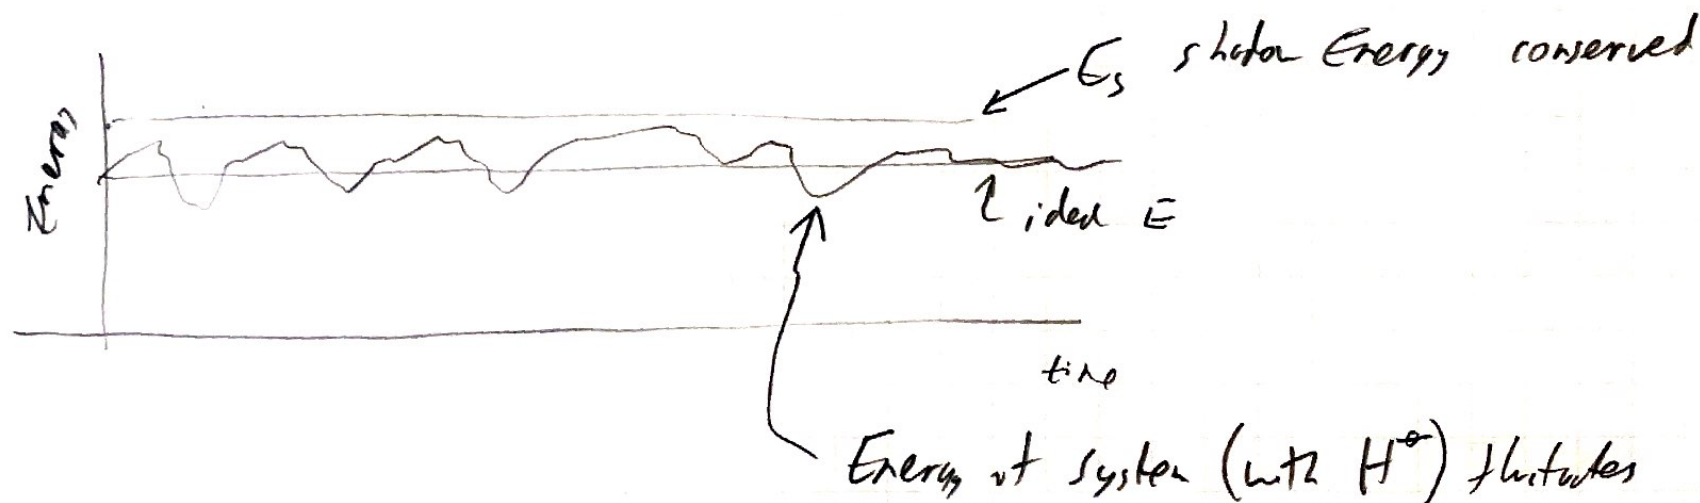 Es shadow Energy conserved
Energy
ideal E
time
Energy of system (with H^⊖) fluctuates